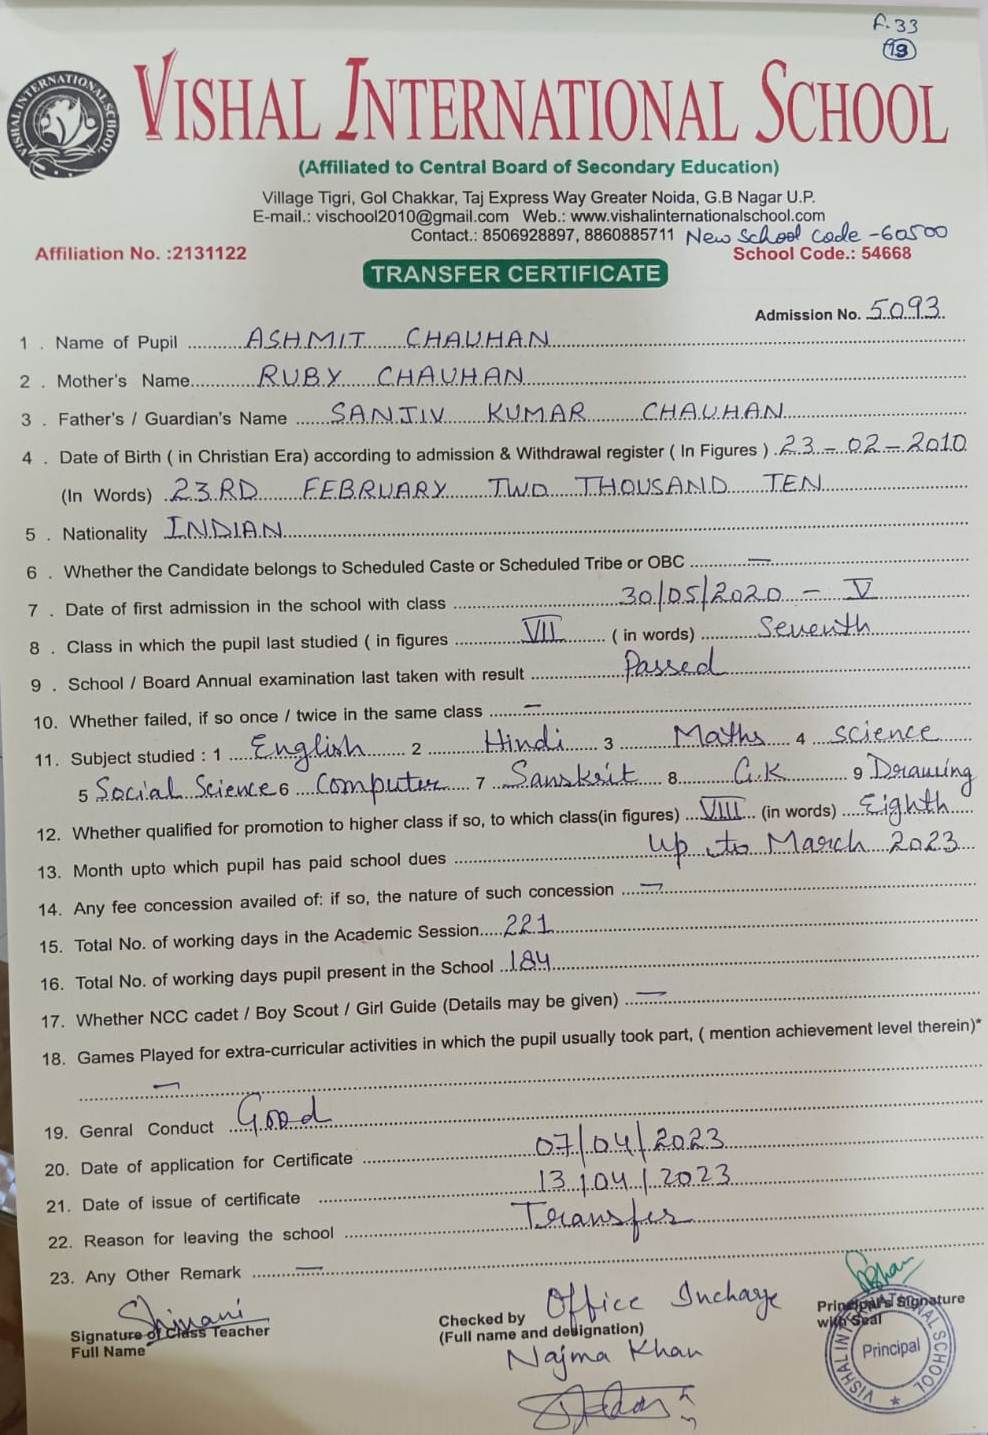 F.33
19
VISHAL INTERNATIONAL SCHOOL
VISHAL INTERNATIONAL SCHOOL
(Affiliated to Central Board of Secondary Education)
Village Tigri, Gol Chakkar, Taj Express Way Greater Noida, G.B Nagar U.P.
E-mail.: vischool2010@gmail.com Web.: www.vishalinternationalschool.com
Contact.: 8506928897, 8860885711 New School Code - 60500
Affiliation No. :2131122 School Code.: 54668
TRANSFER CERTIFICATE
Admission No. 5093
1 . Name of Pupil ASHMIT CHAUHAN
2 . Mother's Name RUBY CHAUHAN
3 . Father's / Guardian's Name SANJIV KUMAR CHAUHAN
4 . Date of Birth ( in Christian Era) according to admission & Withdrawal register ( In Figures ) 23-02-2010
(In Words) 23RD FEBRUARY TWO THOUSAND TEN
5 . Nationality INDIAN
6 . Whether the Candidate belongs to Scheduled Caste or Scheduled Tribe or OBC —
7 . Date of first admission in the school with class 30/05/2020 - V
8 . Class in which the pupil last studied ( in figures VII ( in words) Seventh
9 . School / Board Annual examination last taken with result Passed
10. Whether failed, if so once / twice in the same class —
11. Subject studied : 1 English 2 Hindi 3 Maths 4 Science
5 Social Science 6 Computer 7 Sanskrit 8. G.K 9 Drawing
12. Whether qualified for promotion to higher class if so, to which class(in figures) VIII (in words) Eighth
13. Month upto which pupil has paid school dues Up to March 2023
14. Any fee concession availed of: if so, the nature of such concession —
15. Total No. of working days in the Academic Session 221
16. Total No. of working days pupil present in the School 184
17. Whether NCC cadet / Boy Scout / Girl Guide (Details may be given) —
18. Games Played for extra-curricular activities in which the pupil usually took part, ( mention achievement level therein)*
—
19. Genral Conduct Good
20. Date of application for Certificate 07/04/2023
21. Date of issue of certificate 13/04/2023
22. Reason for leaving the school Transfer
23. Any Other Remark —
Signature of Class Teacher
Full Name
Checked by Office Incharge
(Full name and designation)
Najma Khan
Principal's Signature
with Seal
VISHAL INTERNATIONAL SCHOOL
Principal